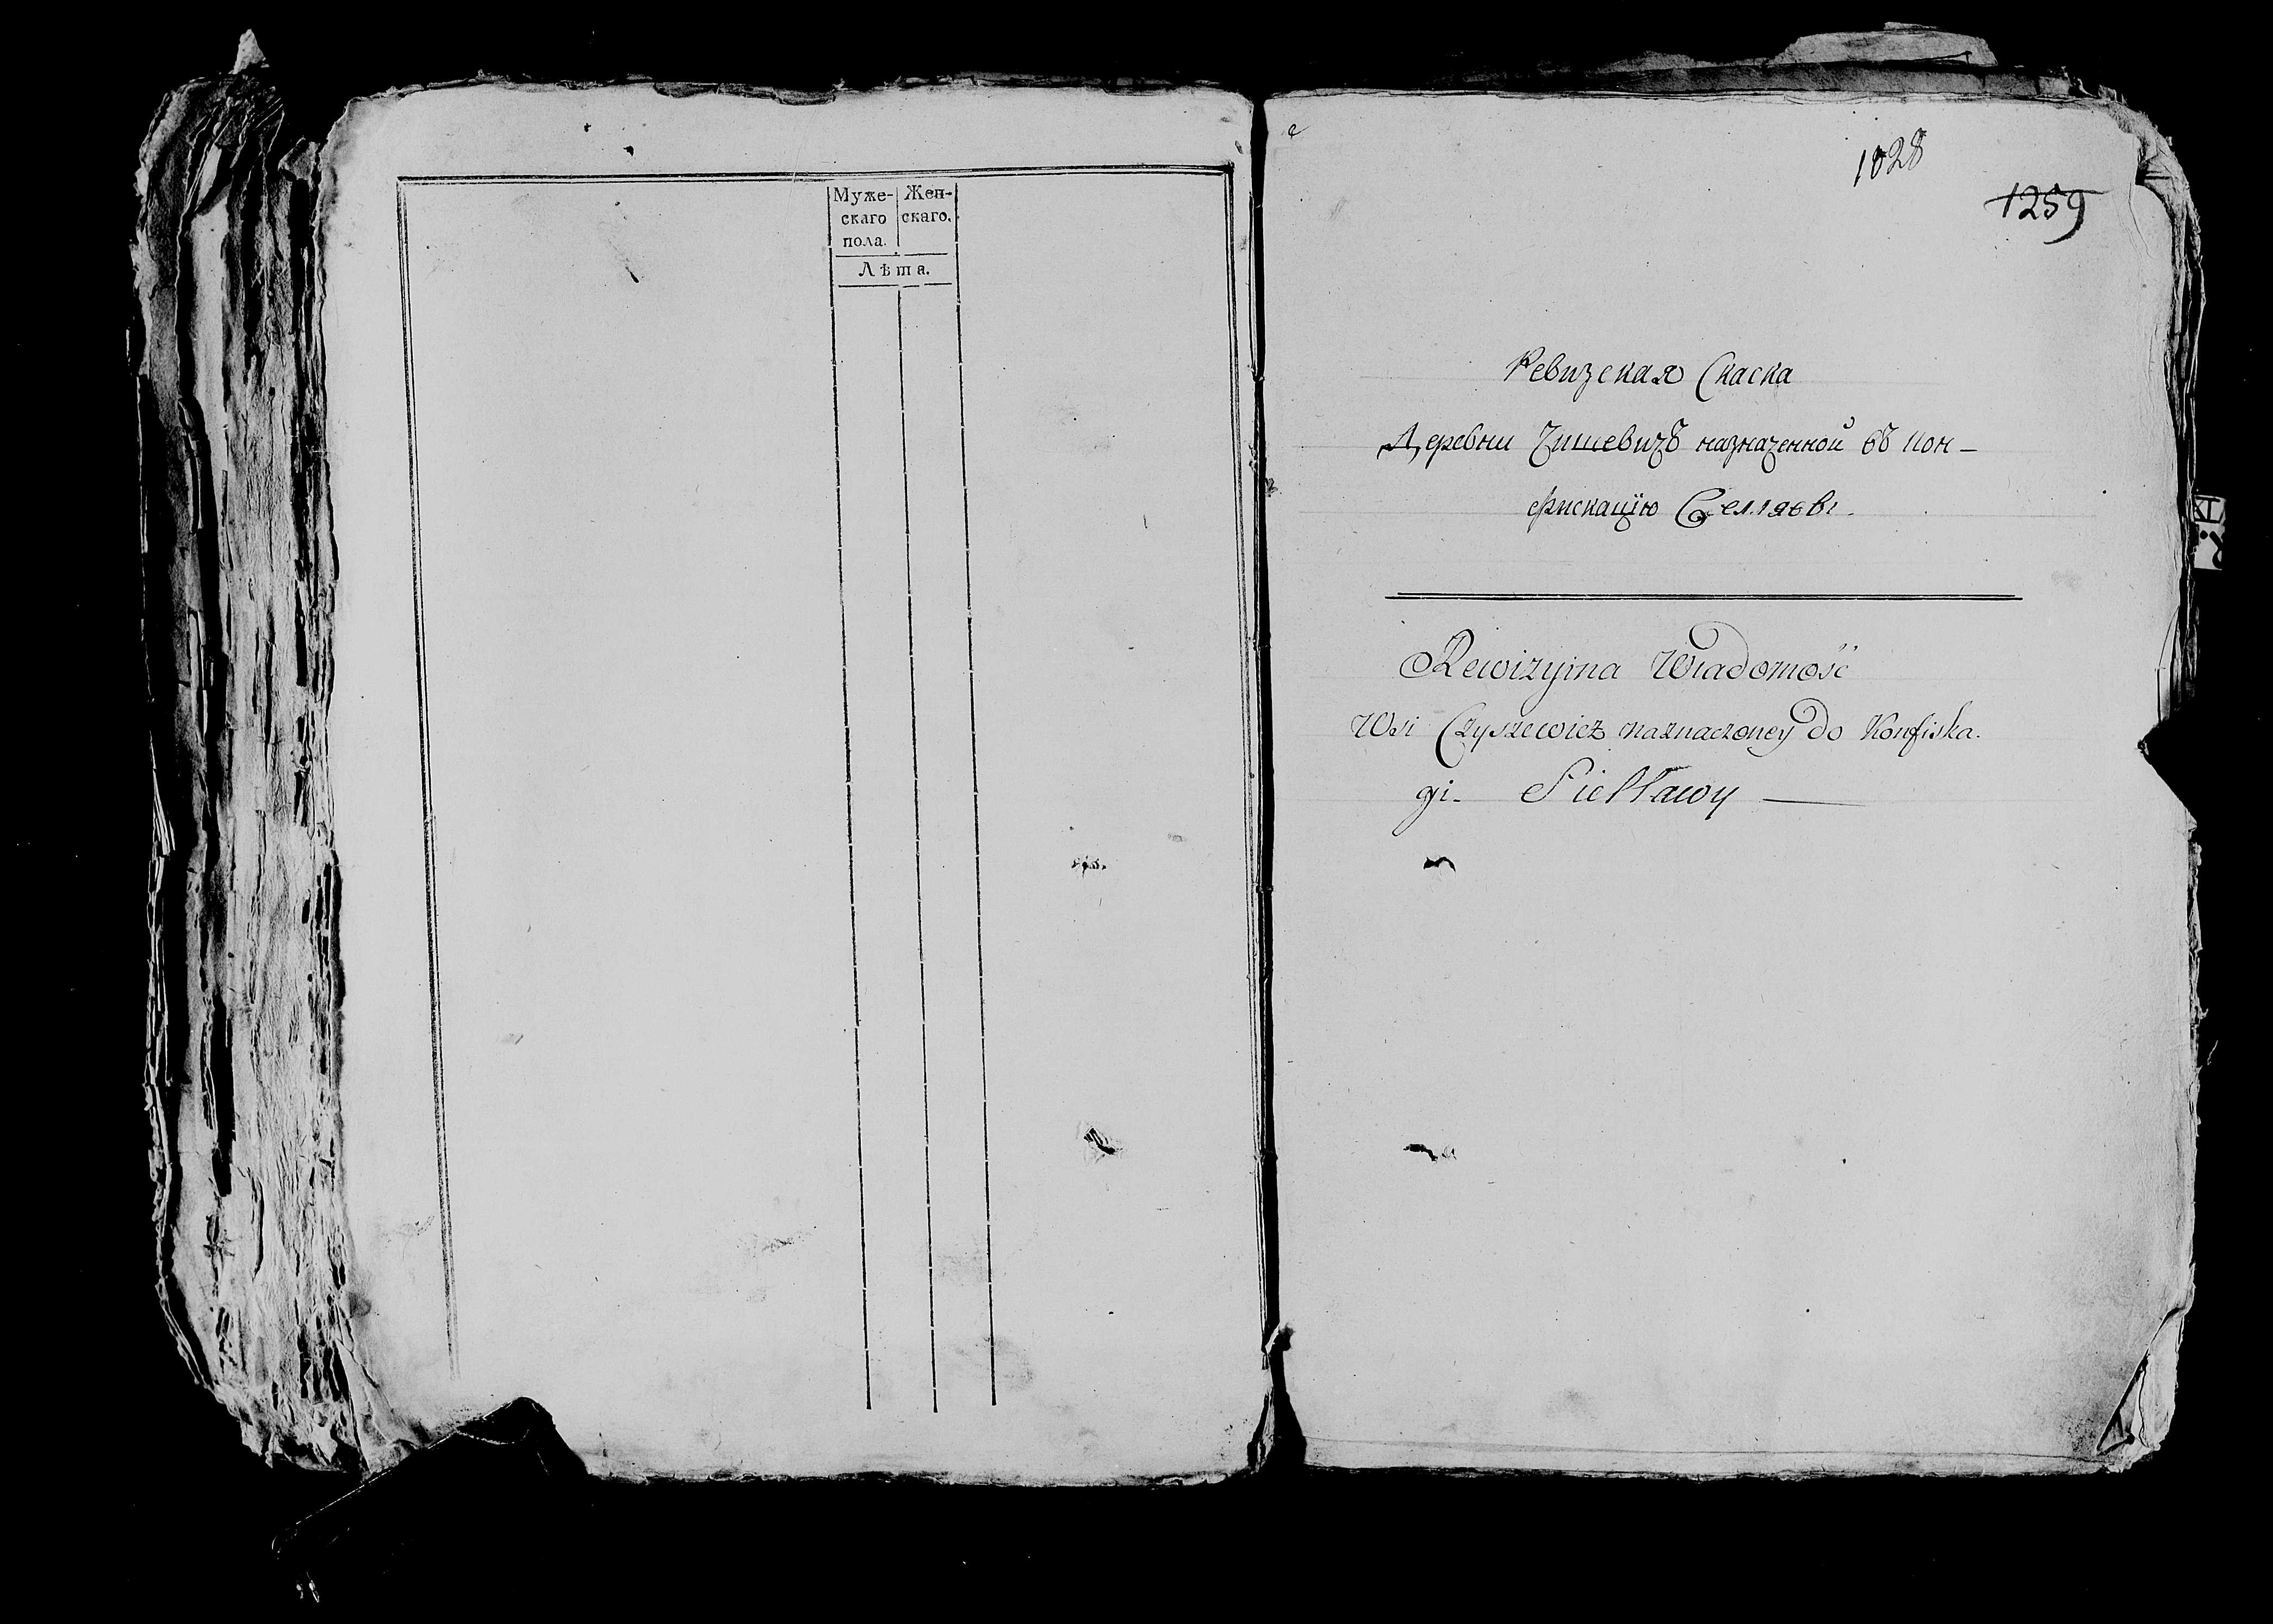 Муже-
скаго
пола.
Жен-
скаго.
Лѣта.
1028
1259
Ревизская Скаска
Деревни Чишевичъ назначенной въ кон-
фискацію Селявы.
Rewizyina Wiadomość
Wsi Czyszewicz naznaczoney do Konfiska.
gi. Siellawy